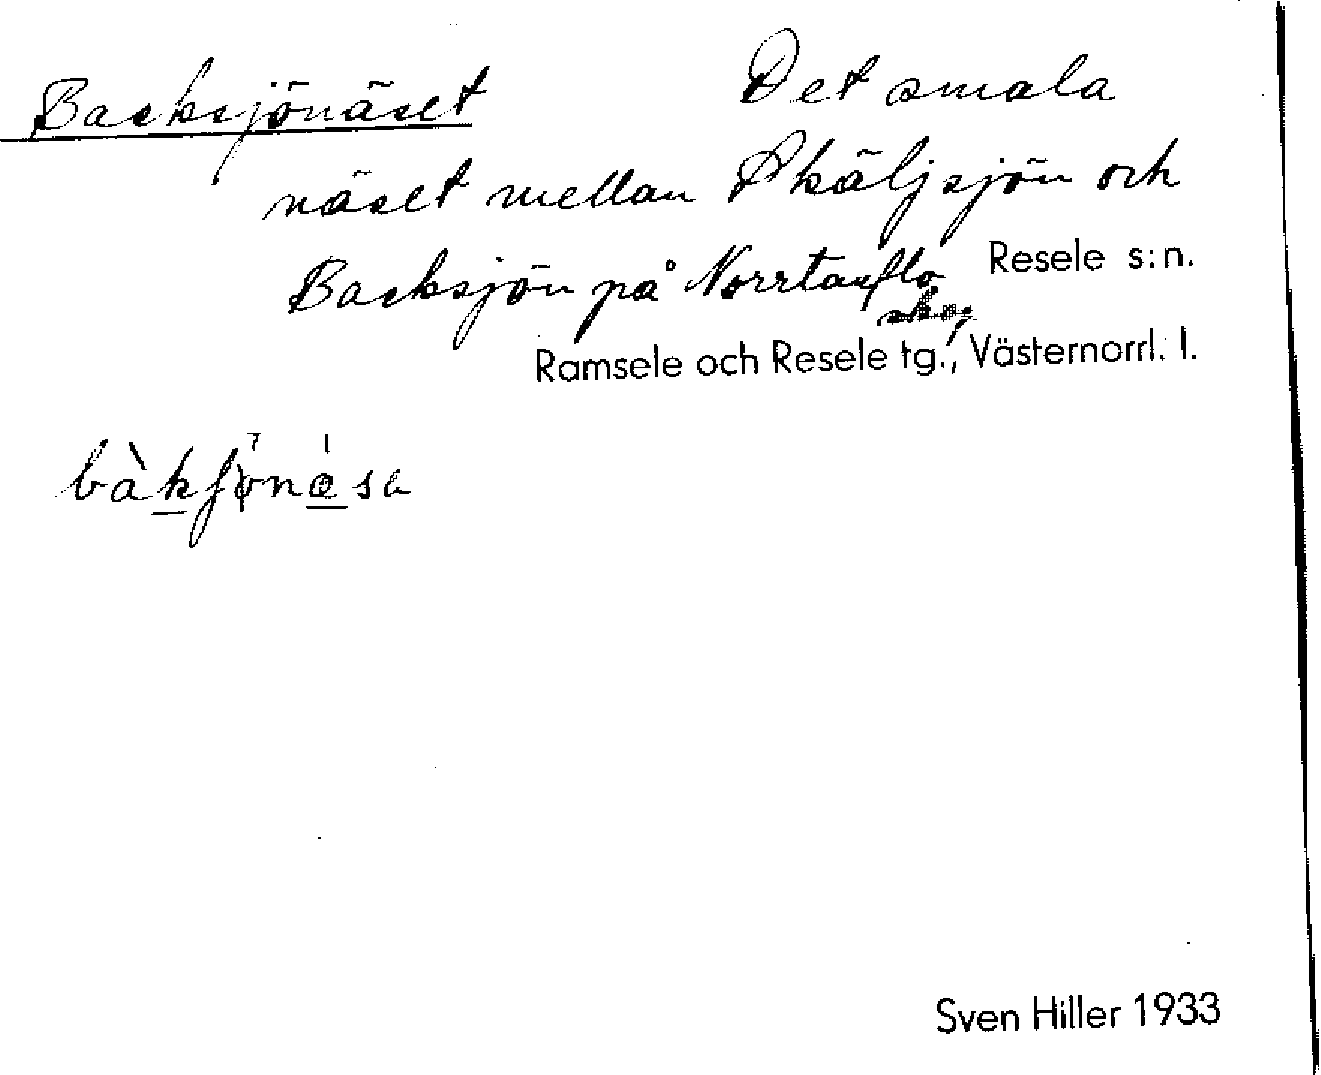 Backsjönäset Det smala
näset mellan Skäljsjön och
Backsjön på Norrtanflo Resele s:n.
skog
Ramsele och Resele tg., Västernorrl. l.
Sven Hiller 1933